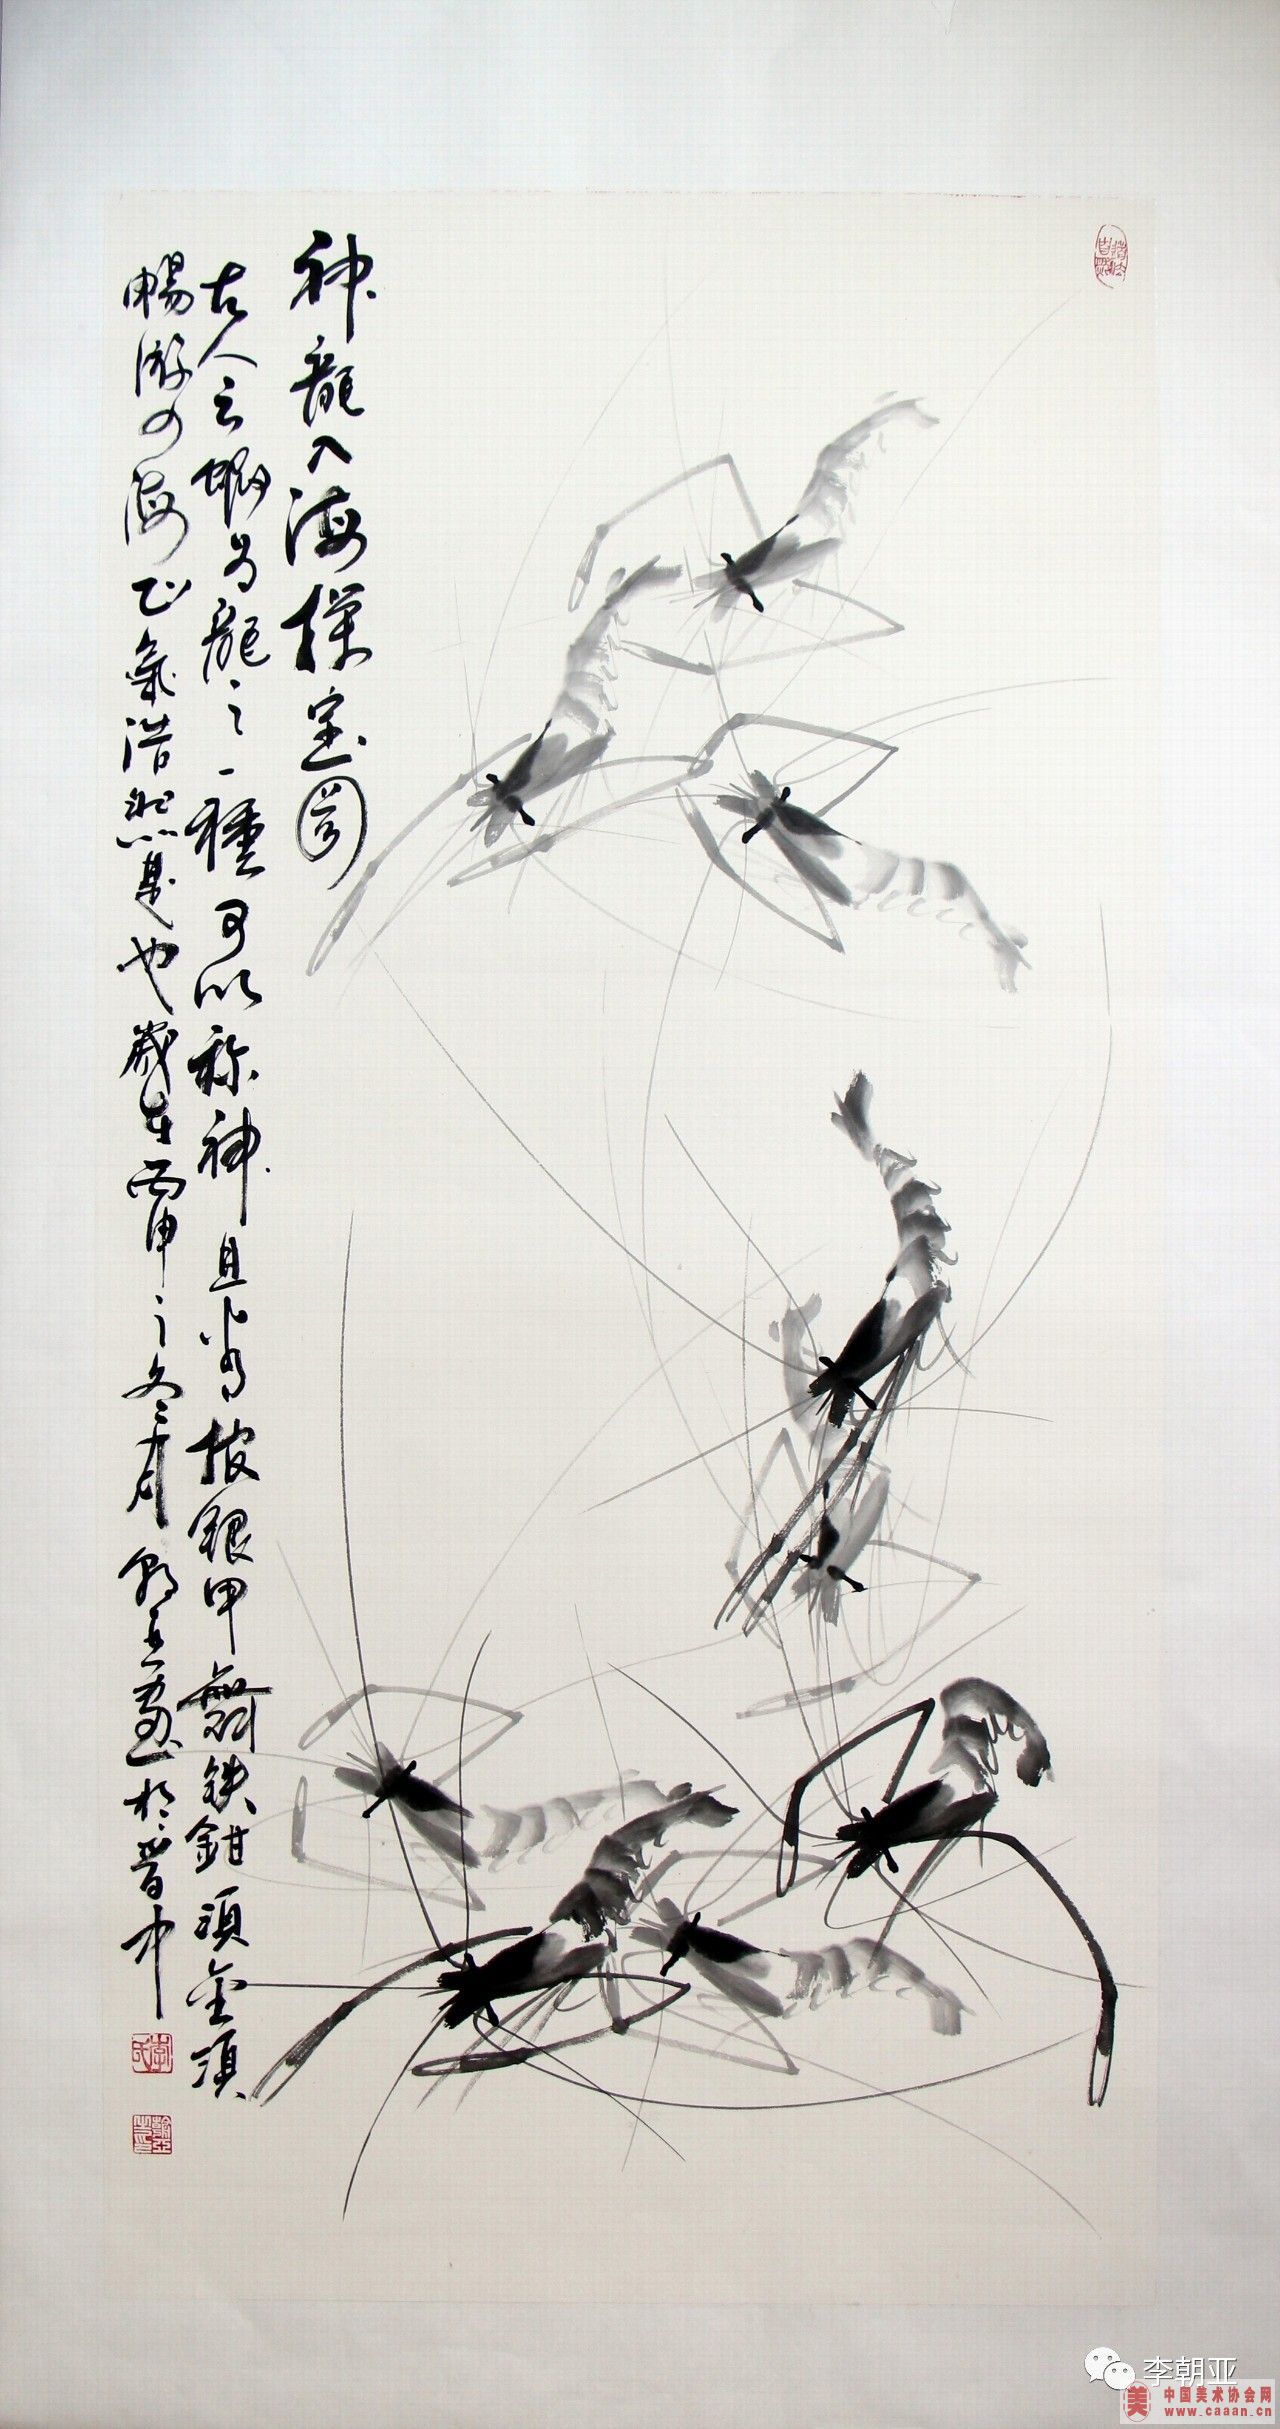 神龍入海探宝圖
古人云蝦为龍之一種可以称神且常披銀甲舞鉄鉗頂金須
暢游四海正氣浩然是也歲在丙申之冬二月朝亚畫於晉中
李氏
李朝亚
美 中国美术协会网
www.caaan.cn